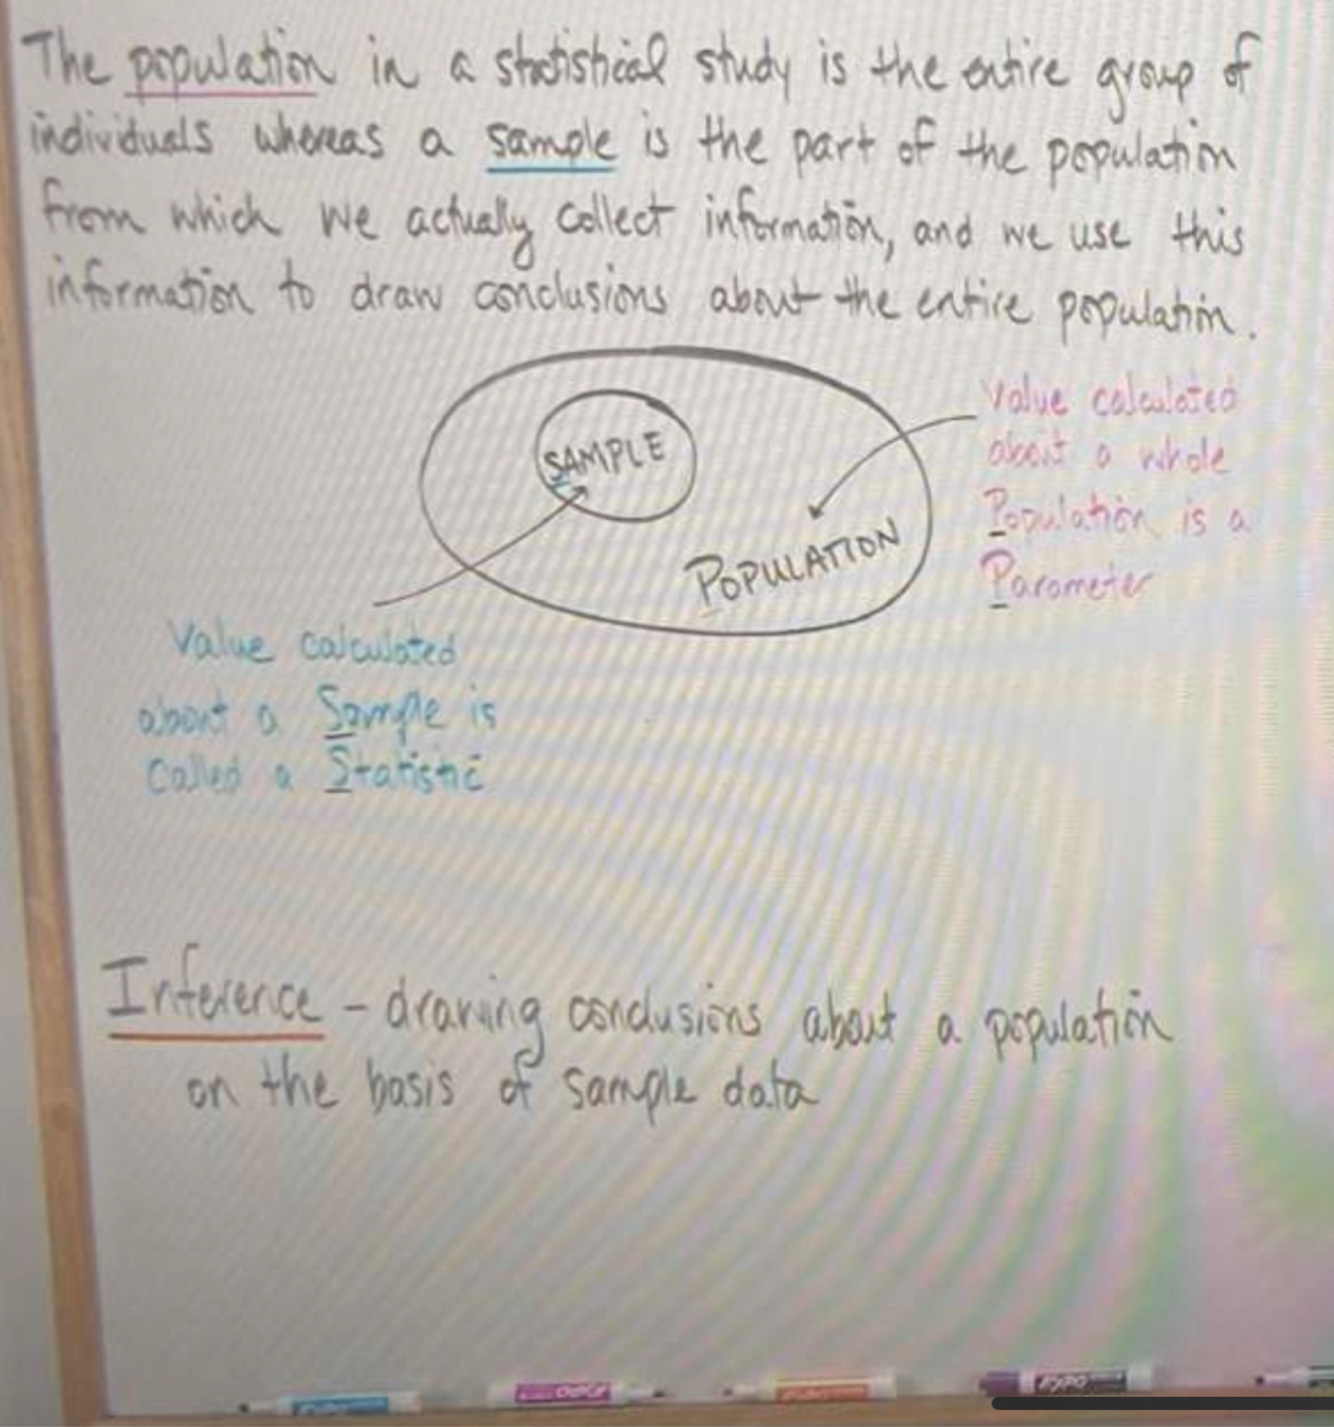 The population in a statistical study is the entire group of
individuals whereas a sample is the part of the population
from which we actually collect information, and we use this
information to draw conclusions about the entire population.
SAMPLE
POPULATION
Value calculated
about a whole
Population is a
Parameter
Value calculated
about a Sample is
called a Statistic
Inference - drawing conclusions about a population
on the basis of sample data
EXPO
EXPO